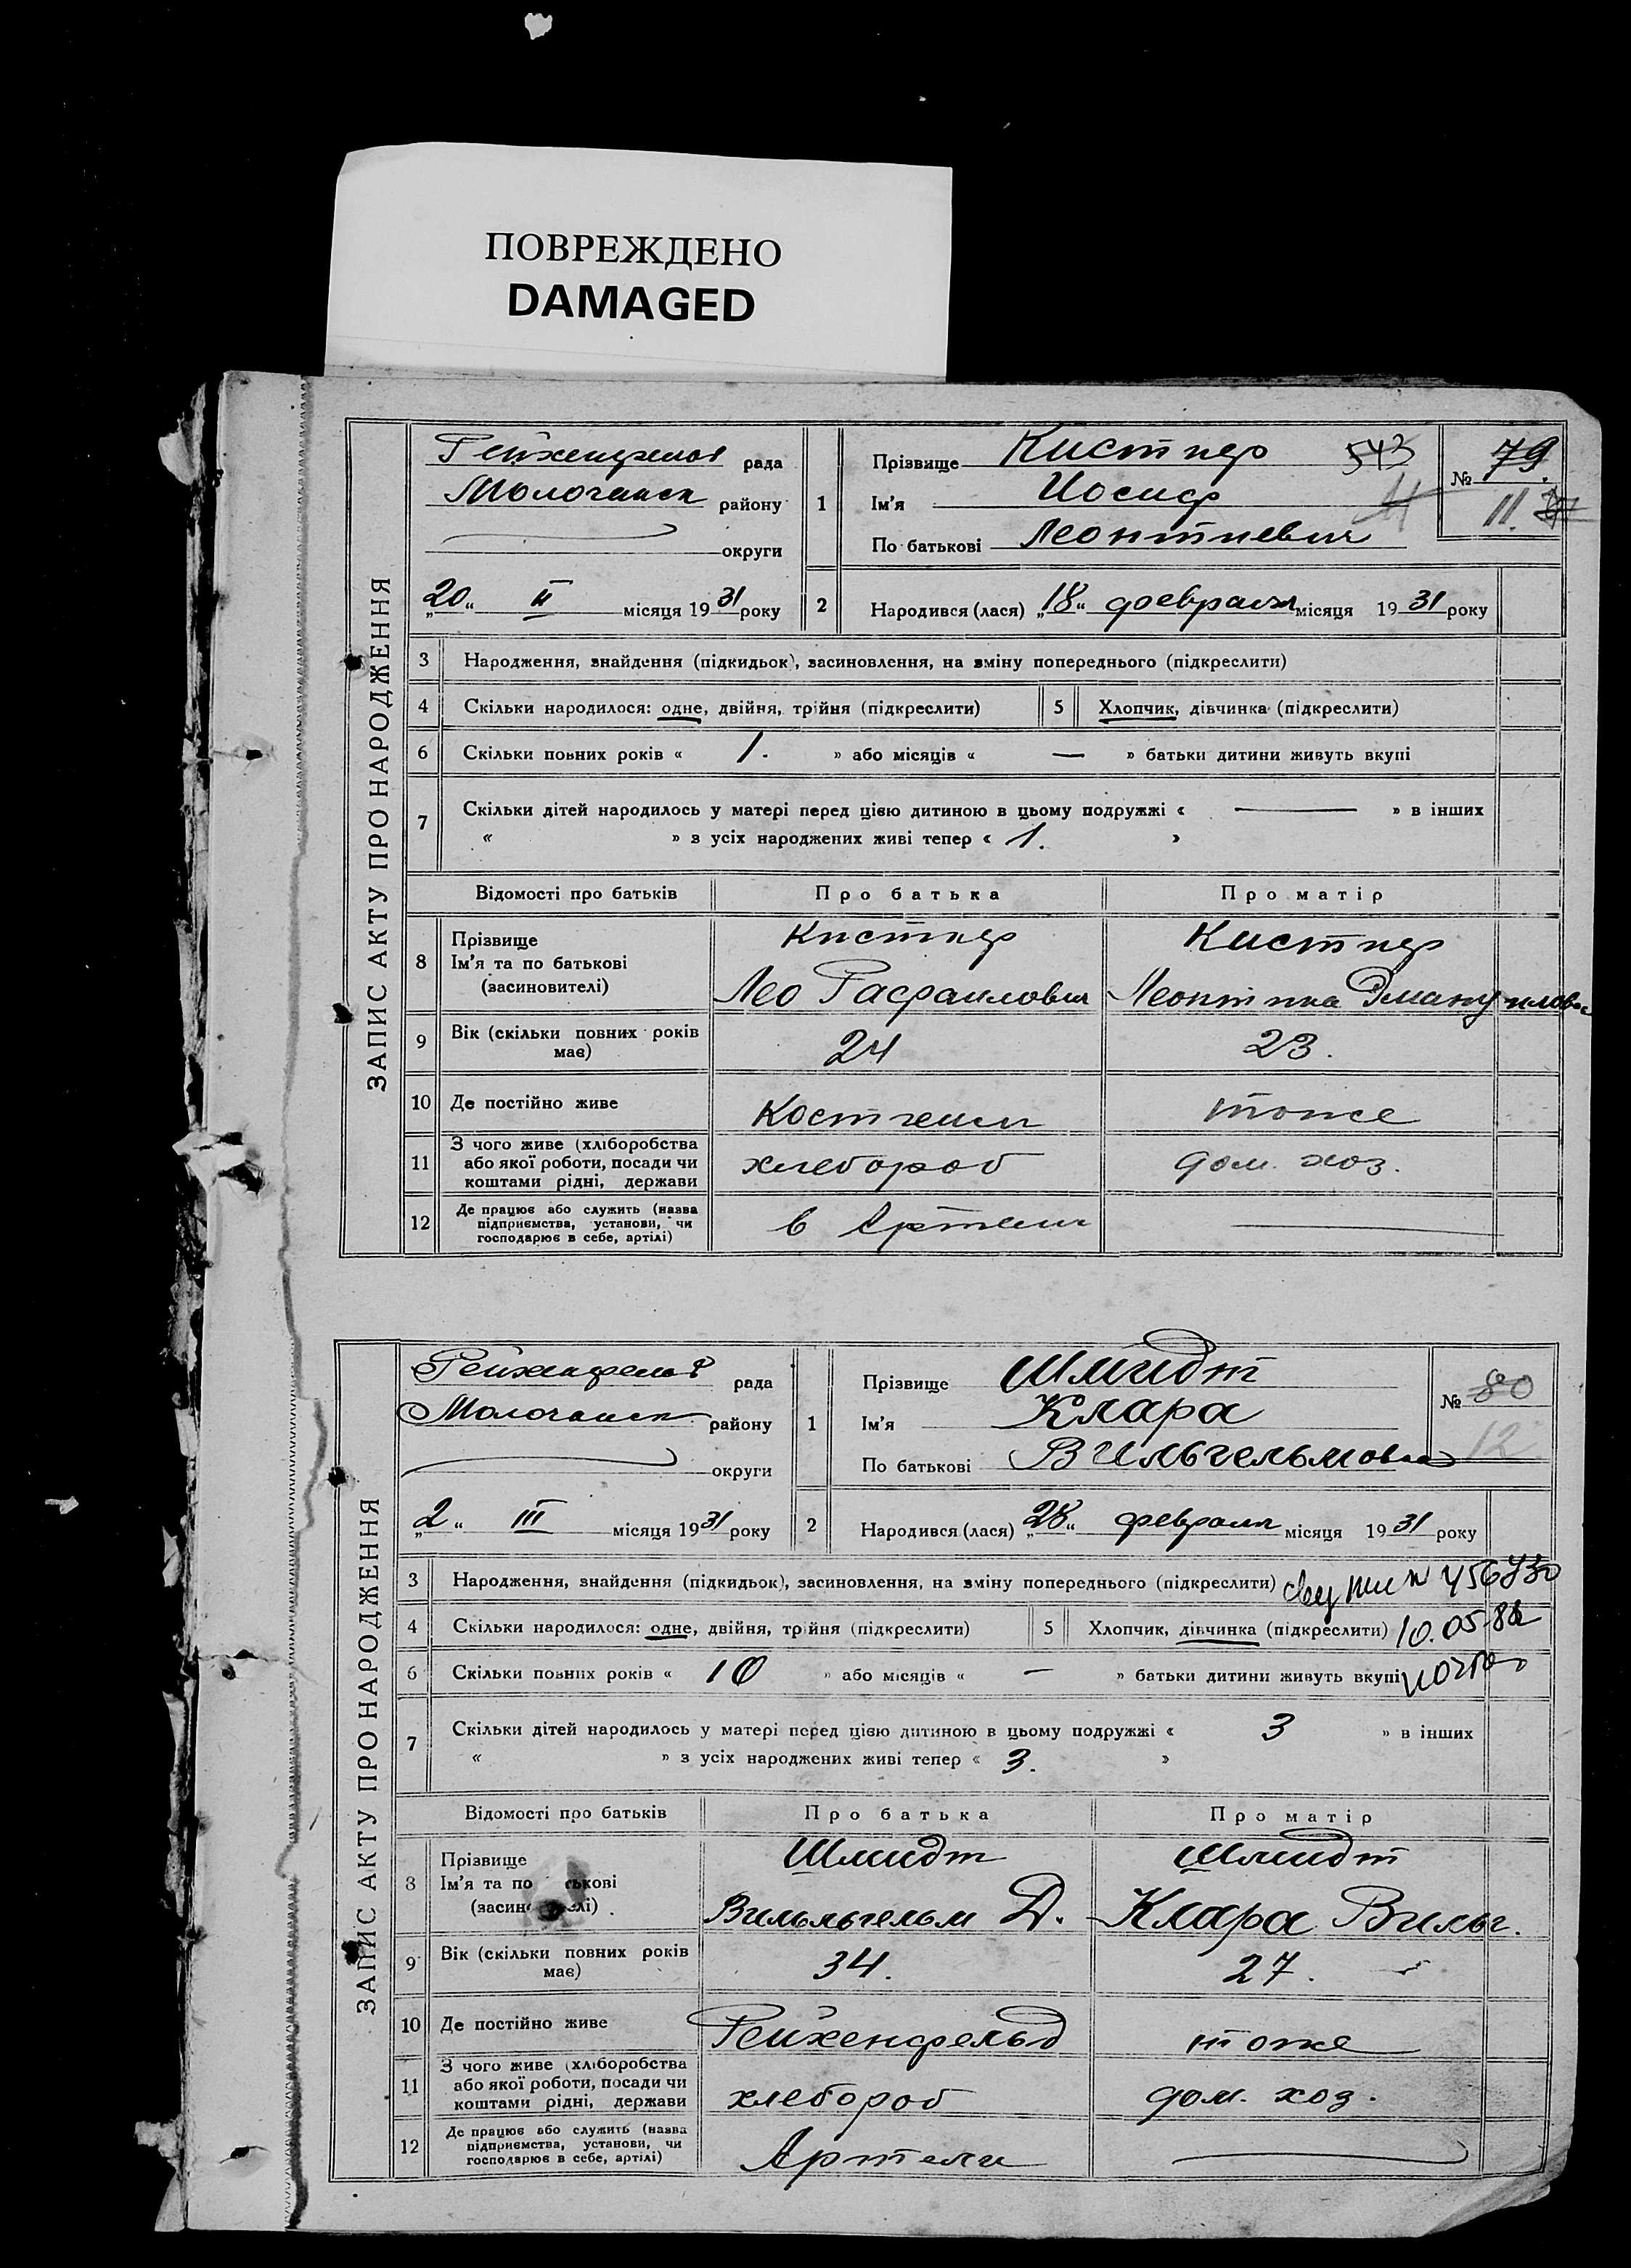 ПОВРЕЖДЕНО
DAMAGED
ЗАПИС АКТУ ПРО НАРОДЖЕННЯ
Рейхенфельд рада
Молочанск району
округи
„20“ II місяця 1931 року
1 Прізвище Кистнер 543
Ім'я Иосиф
По батькові Леонтиевич
№ 79.
11.
2 Народився (лася) „18“ февраля місяця 1931 року
3 Народження, знайдення (підкидьок), засиновлення, на зміну попереднього (підкреслити)
4 Скільки народилося: одне, двійня, трійня (підкреслити) 5 Хлопчик, дівчинка (підкреслити)
6 Скільки повних років « 1. » або місяців « — » батьки дитини живуть вкупі
7 Скільки дітей народилось у матері перед цією дитиною в цьому подружжі « — » в інших
« » з усіх народжених живі тепер « 1. »
Відомості про батьків Про батька Про матір
8 Прізвище Ім'я та по батькові (засновителі) Кистнер Кистнер
Лео Рафаилович Леонтина Эмануиловна
9 Вік (скільки повних років має) 24 23.
10 Де постійно живе тоже
11 З чого живе (хліборобства або якої роботи, посади чи коштами рідні, держави хлебороб дом. хоз.
12 Де працює або служить (назва підприємства, установи, чи господарює в себе, артілі) в Артели —
ЗАПИС АКТУ ПРО НАРОДЖЕННЯ
Рейхенфельд рада
Молочанск району
округи
„2“ III місяця 1931 року
1 Прізвище Шмидт
Ім'я Клара
По батькові Вильгельмовна
№ 80
12
2 Народився (лася) „28“ февраля місяця 1931 року
3 Народження, знайдення (підкидьок), засиновлення, на зміну попереднього (підкреслити)
4 Скільки народилося: одне, двійня, трійня (підкреслити) 5 Хлопчик, дівчинка (підкреслити) 10.05.
6 Скільки повних років « 10 » або місяців « — » батьки дитини живуть вкупі
7 Скільки дітей народилось у матері перед цією дитиною в цьому подружжі « 3 » в інших
« » з усіх народжених живі тепер « 3. »
Відомості про батьків Про батька Про матір
8 Прізвище Ім'я та по Шмидт Шмидт
Вильгельм Д. Клара Вильг.
9 Вік (скільки повних років має) 34. 27.
10 Де постійно живе Рейхенфельд тоже
11 З чого живе (хліборобства або якої роботи, посади чи коштами рідні, держави хлебороб дом. хоз.
12 Де працює або служить (назва підприємства, установи, чи господарює в себе, артілі) Артели —